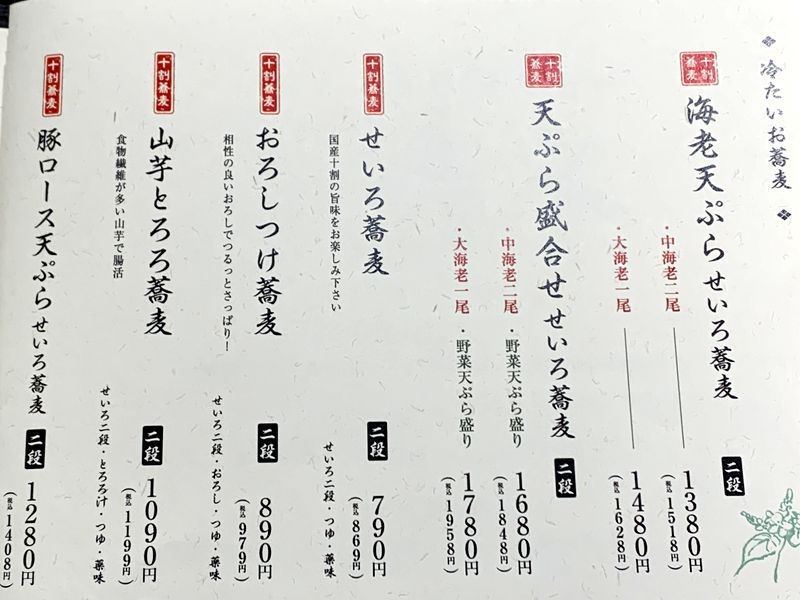 ❖ 冷たいお蕎麦 ❖
十割蕎麦
海老天ぷらせいろ蕎麦 二段
・中海老二尾 1380円
(税込1518円)
・大海老一尾 1480円
(税込1628円)
十割蕎麦
天ぷら盛合せせいろ蕎麦 二段
・中海老二尾・野菜天ぷら盛り 1680円
(税込1848円)
・大海老一尾・野菜天ぷら盛り 1780円
(税込1958円)
十割蕎麦
せいろ蕎麦 二段 790円
(税込869円)
国産十割の旨味をお楽しみ下さい
せいろ二段・つゆ・薬味
十割蕎麦
おろしつけ蕎麦 二段 890円
(税込979円)
相性の良いおろしでつるっとさっぱり!
せいろ二段・おろし・つゆ・薬味
十割蕎麦
山芋とろろ蕎麦 二段 1090円
(税込1199円)
食物繊維が多い山芋で腸活
せいろ二段・とろろ汁・つゆ・薬味
十割蕎麦
豚ロース天ぷらせいろ蕎麦 二段 1280円
(税込1408円)